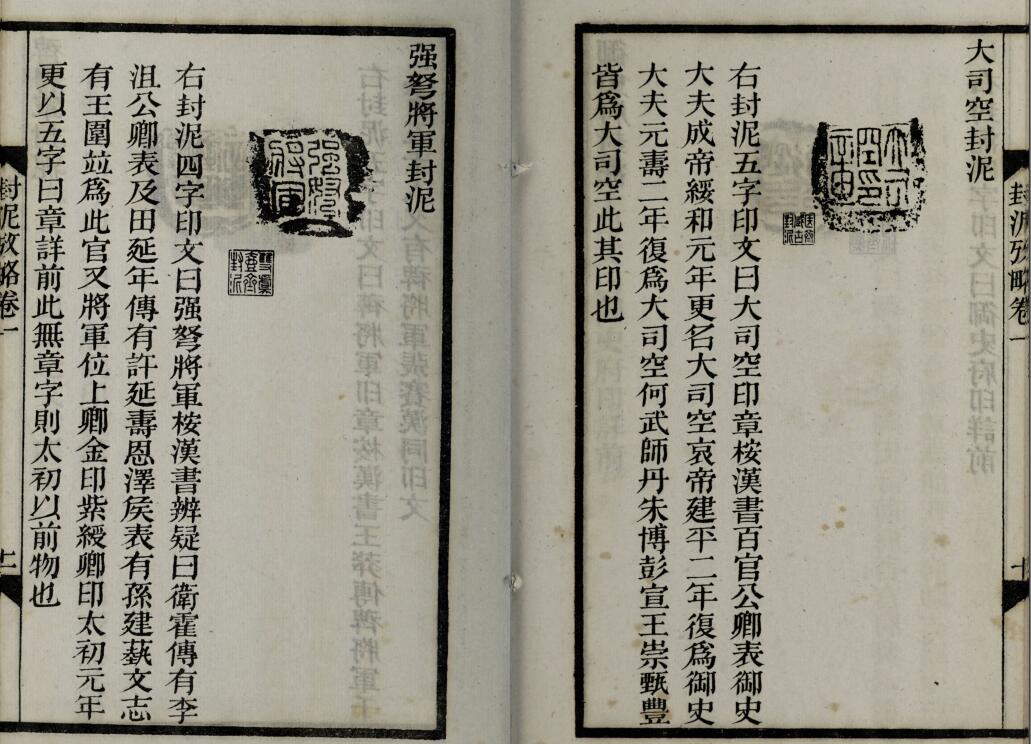 大司空封泥
右封泥五字印文曰大司空印章桉漢書百官公卿表御史
大夫成帝綏和元年更名大司空哀帝建平二年復爲御史
大夫元壽二年復爲大司空何武師丹朱博彭宣王崇甄豐
皆爲大司空此其印也
封泥攷略卷一
十
强弩將軍封泥
强弩將軍
右封泥四字印文曰强弩將軍桉漢書辨疑曰衛霍傳有李
沮公卿表及田延年傳有許延壽恩澤矦表有孫建蓺文志
有王圍並爲此官又將軍位上卿金印紫綬卿印太初元年
更以五字曰章詳前此無章字則太初以前物也
封泥攷略卷一
十一